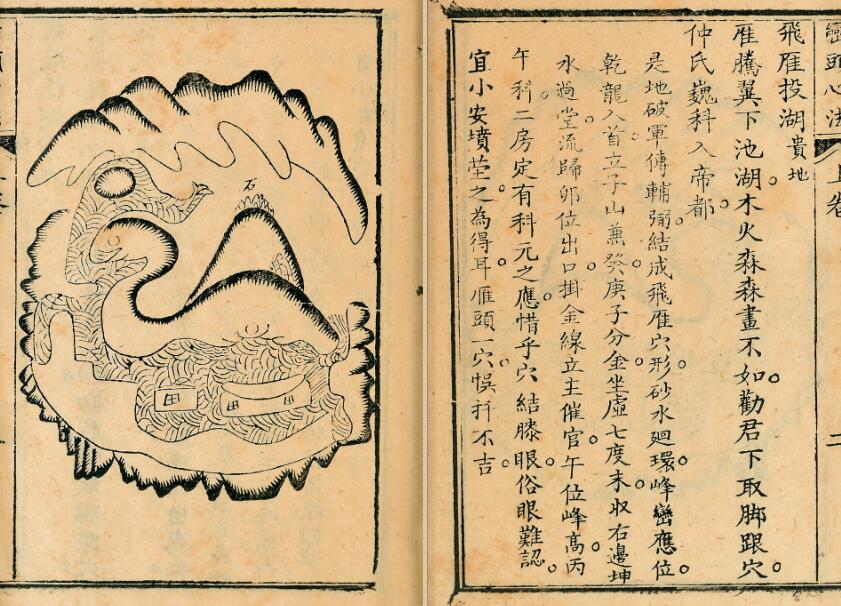 巒頭心法
上卷
二
飛雁投湖貴地
雁騰翼下池湖。木火森森畫不如。勸君下取脚跟穴。
仲氏巍科入帝都。
是地破軍傳輔弼。結成飛雁穴形。砂水廻環。峰巒應位。
乾龍入首。立子山兼癸。庚子分金。坐虛七度末。收右邊坤
水過堂。流歸卯位出口。掛金線立主催官。午位峰高。丙
午科。二房定有科元之應。惜乎穴結膝眼。俗眼難認。
宜小安墳塋之。為得耳。雁頭一穴。悞扦不吉。
石
田
田
田